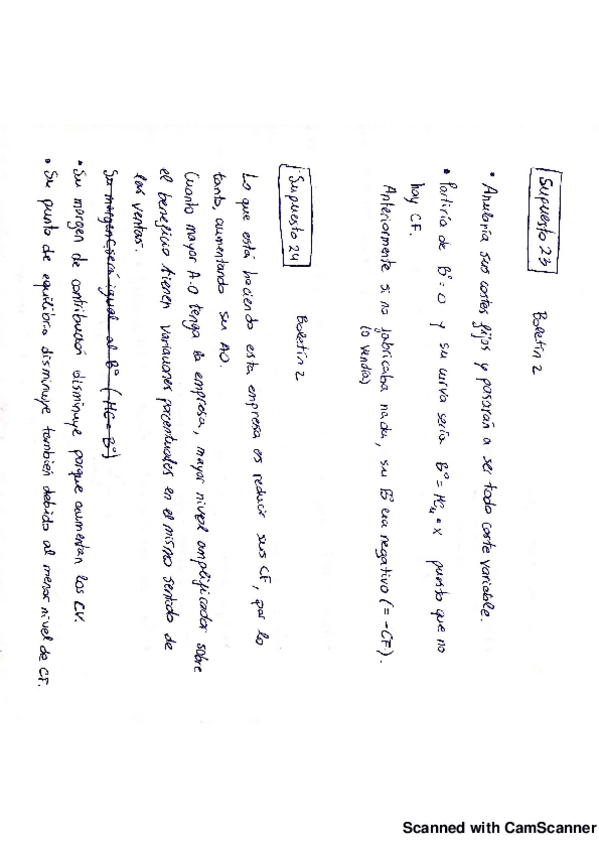 Supuesto 23 Boletín 2
• Anularía sus costes fijos y pasarán a ser todo coste variable.
• Partiría de Bº = 0 y su curva sería Bº = MCu • x puesto que no
hay CF.
Anteriormente si no fabricaba nada, su Bº era negativo (= -CF).
(o vendía)
Supuesto 24 Boletín 2
Lo que está haciendo esta empresa es reducir sus CF, por lo
tanto, aumentando su AO.
Cuanto mayor A.O tenga la empresa, mayor nivel amplificador sobre
el beneficio tienen variaciones porcentuales en el mismo sentido de
las ventas.
Su margen C será igual al Bº (MC = Bº)
• Su margen de contribución disminuye porque aumentan los CV.
• Su punto de equilibrio disminuye también debido al menor nivel de CF.
Scanned with CamScanner